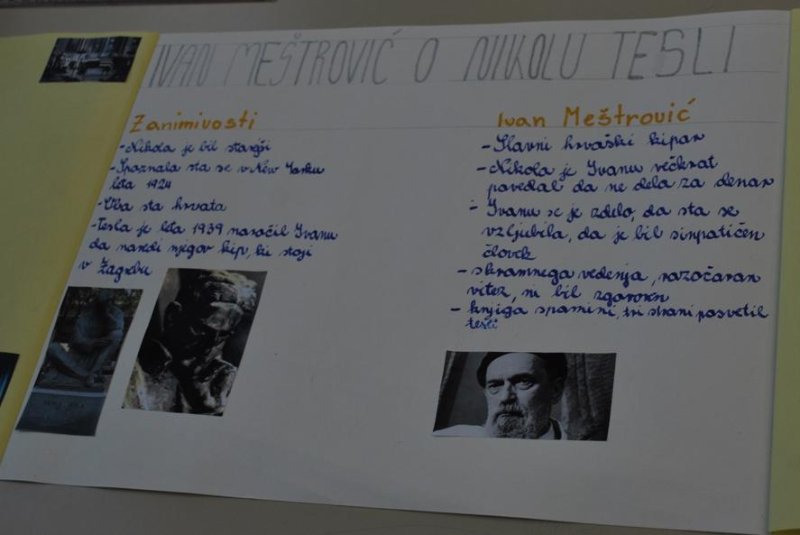 IVAN MEŠTROVIĆ O NIKOLU TESLI
Zanimivosti
- Nikola je bil starejši
- Spoznala sta se v New Yorku
leta 1924
- Oba sta hrvata
- Tesla je leta 1939 naročil Ivanu
da naredi njegov kip, ki stoji
v Zagrebu
Ivan Meštrović
- Slavni hrvaški kipar
- Nikola je Ivanu večkrat
povedal da ne dela za denar
- Ivanu se je zdelo, da sta se
vzljubila, da je bil simpatičen
človek
- skramnega vedenja, razočaran
vitez, ni bil zgovoren
- knjiga spomini, tri strani posvetil
tesli